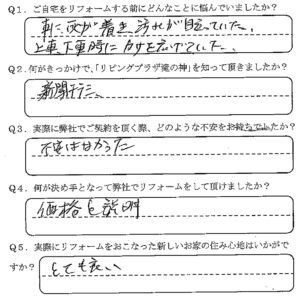 Q1. ご自宅をリフォームする前にどんなことに悩んでいましたか？
車に灰が着き汚れが目っていた。
上車下車時にカサを広げていた。
Q2. 何がきっかけで、「リビングプラザ滝の神」を知って頂きましたか？
新聞チラシ
Q3. 実際に弊社でご契約を頂く際、どのような不安をお持ちでしたか？
不安はなかった
Q4. 何が決め手となって弊社でリフォームをして頂けましたか？
価格と説明
Q5. 実際にリフォームをおこなった新しいお家の住み心地はいかがで
すか？
とても良い